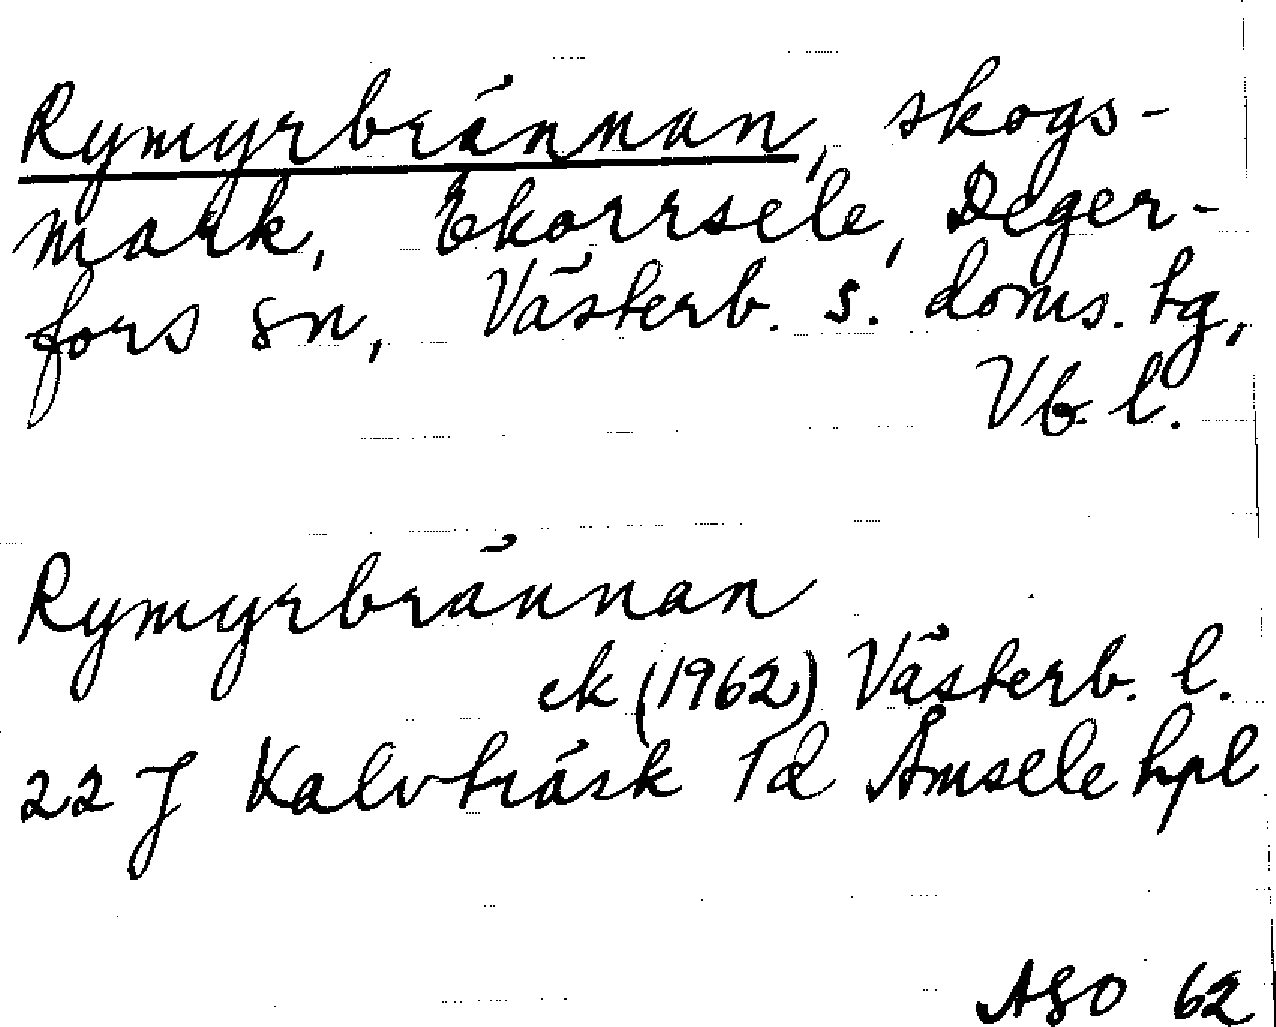 Rymyrbrännan, skogs-
mark, Ekorrsele, Deger-
fors sn, Västerb. s. doms. tg,
Vb. l.
Rymyrbrännan
ek (1962) Västerb. l.
22 J Kalvträsk 1d Åmsele hpl
ASO 62